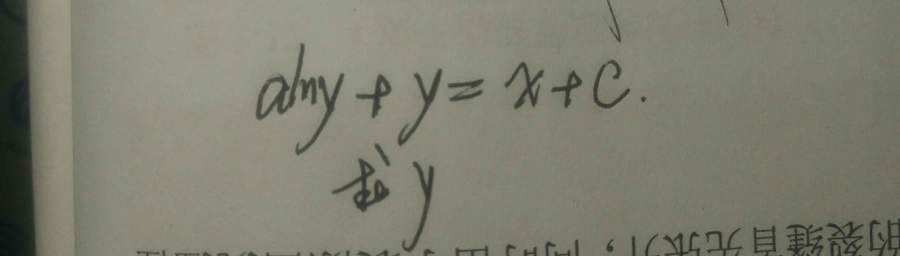 alny + y = x + c.
求 y